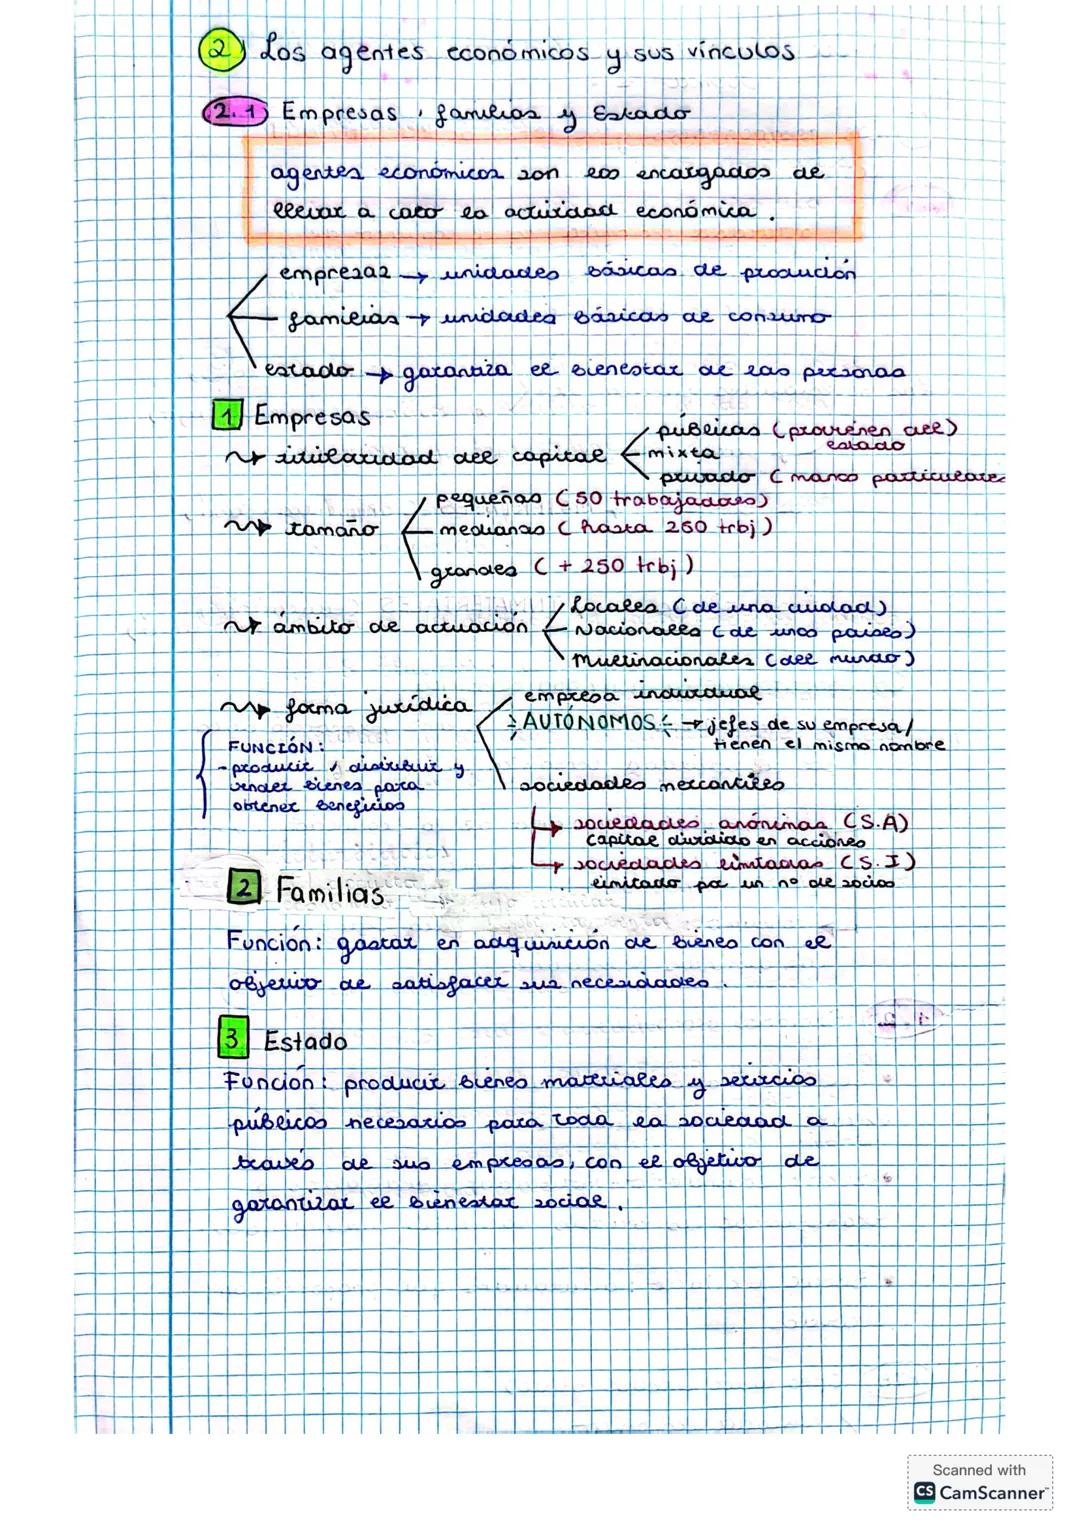 2 Los agentes económicos y sus vínculos
2.1 Empresas, familias y Estado
agentes económicos son los encargados de
llevar a cabo la actividad económica.
empresas → unidades básicas de produción
familias → unidades básicas de consumo
estado → garantiza el bienestar de las personas
1 Empresas
titularidad del capital
públicas (provienen del)
estado
mixta
privado (manos particulares
tamaño
pequeñas (50 trabajadores)
medianas (hasta 250 trbj)
grandes (+ 250 trbj)
ámbito de actuación
Locales (de una ciudad)
Nacionales (de unos paises)
Multinacionales (del mundo)
forma jurídica
empresa individual
AUTÓNOMOS → jefes de su empresa/
tienen el mismo nombre
sociedades mercantiles
sociedades anónimas (S.A)
capital dividido en acciones
sociedades limitadas (S.I)
limitado por un nº de socios
FUNCIÓN:
- producir, distribuir y
vender bienes para
obtener beneficios
2 Familias
Función: gastar en adquisición de bienes con el
objetivo de satisfacer sus necesidades.
3 Estado
Función: producir bienes materiales y servicios
públicos necesarios para toda la sociedad a
través de sus empresas, con el objetivo de
garantizar el bienestar social.
Scanned with
CS CamScanner